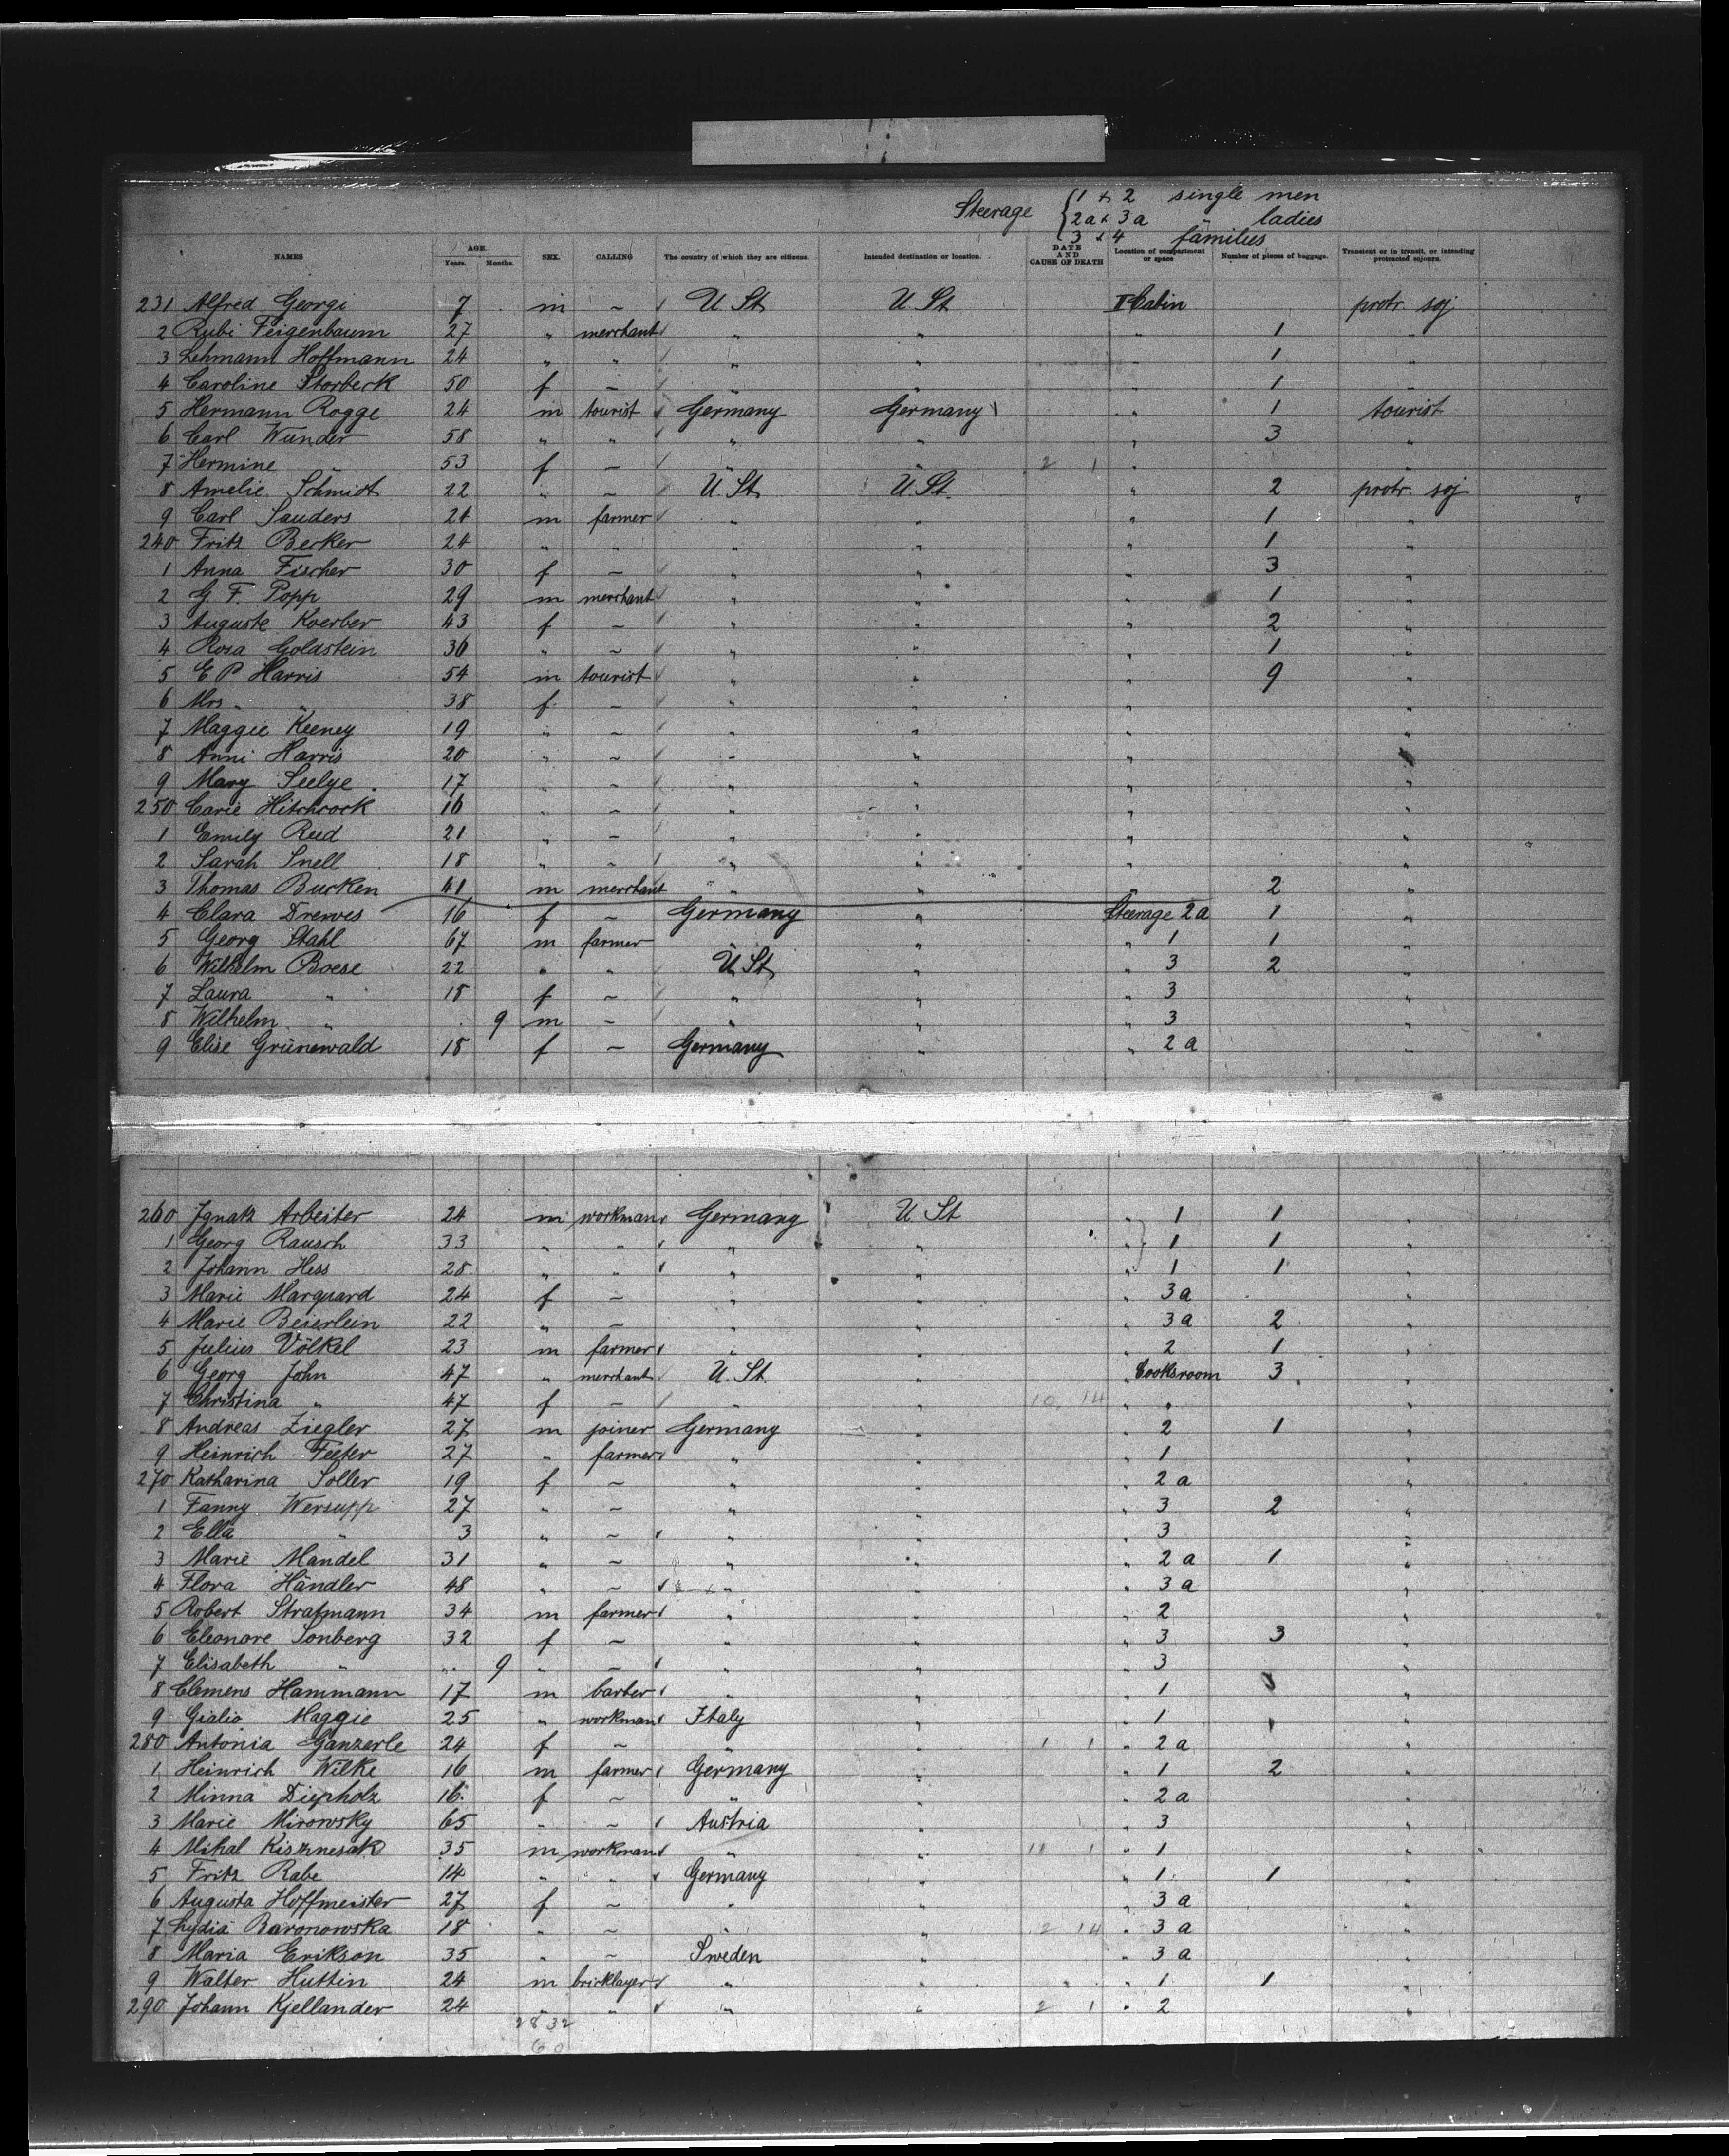 Steerage { 1 + 2 single men
2a + 3a " ladies
3 + 4 families
NAMES AGE. Years. Months. SEX. CALLING The country of which they are citizens. Intended destination or location. DATE AND CAUSE OF DEATH Location of compartment or space Number of pieces of baggage. Transient or in transit, or intending protracted sojourn.
231 Alfred Georgi 7 m ~ U. St. U. St. II Cabin protr. soj
2 Rubi Feigenbaum 27 " merchant " " " 1 "
3 Lehmann Hoffmann 24 " " " " " 1 "
4 Caroline Storbeck 50 f ~ " " " 1 "
5 Hermann Rogge 24 m tourist Germany Germany " 1 tourist
6 Carl Wunder 58 " " " " " 3 "
7 Hermine " 53 f ~ " " 2 1 " "
8 Amelie Schmidt 22 " ~ U. St. U. St. " 2 protr. soj
9 Carl Sauders 24 m farmer " " " 1 "
240 Fritz Becker 24 " " " " " 1 "
1 Anna Fischer 30 f ~ " " " 3 "
2 G. F. Popp 29 m merchant " " " 1 "
3 Auguste Koerber 43 f ~ " " " 2 "
4 Rosa Goldstein 36 " ~ " " " 1 "
5 E P Harris 54 m tourist " " " 9 "
6 Mrs " " 38 f ~ " " " "
7 Maggie Keeney 19 " ~ " " " "
8 Anni Harris 20 " ~ " " " "
9 Mary Seelye 17 " ~ " " " "
250 Carie Hitchcock 16 " ~ " " " "
1 Emily Reed 21 " ~ " " " "
2 Sarah Snell 18 " ~ " " " "
3 Thomas Burken 41 m merchant " " " 2 "
4 Clara Drewes 16 f ~ Germany " Steerage 2a 1 "
5 Georg Stahl 67 m farmer " " " 1 1 "
6 Wilhelm Boese 22 " " U. St. " " 3 2 "
7 Laura " 18 f ~ " " " 3 "
8 Wilhelm " 9 m ~ " " " 3 "
9 Elise Grünewald 18 f ~ Germany " " 2a "
260 Ignatz Arbeiter 24 m workman Germany U St " 1 1 "
1 Georg Rausch 33 " " " " " 1 1 "
2 Johann Hess 28 " " " " " 1 1 "
3 Marie Marquard 24 f ~ " " " 3a "
4 Marie Beierlein 22 " ~ " " " 3a 2 "
5 Julius Völkel 23 m farmer " " " 2 1 "
6 Georg John 47 " merchant U. St. " " Cooksroom 3 "
7 Christina " 47 f ~ " " 10. 14 " " "
8 Andreas Ziegler 27 m joiner Germany " " 2 1 "
9 Heinrich 27 " farmer " " " 1 "
270 Katharina Soller 19 f ~ " " " 2a "
1 Fanny Wersupp 27 " ~ " " " 3 2 "
2 Ella " 3 " ~ " " " 3 "
3 Marie Mandel 31 " ~ " " " 2a 1 "
4 Flora Händler 48 " ~ " " " 3a "
5 Robert Stratmann 34 m farmer " " " 2 "
6 Eleonore Sonberg 32 f ~ " " " 3 3 "
7 Elisabeth " 9 " ~ " " " 3 "
8 Clemens Hammann 17 m barber " " " 1 "
9 Gialio Maggie 25 " workman Italy " " 1 "
280 Antonia Ganzerle 24 f ~ " " 1 1 " 2a "
1 Heinrich Wilke 16 m farmer Germany " " 1 2 "
2 Minna Diepholz 16 f ~ " " " 2a "
3 Marie Mirowsky 65 " ~ Austria " " 3 "
4 Mihal 35 m workman " " 11 1 " 1 "
5 Fritz Rabe 14 " " Germany " " 1 1 "
6 Augusta Hoffmeister 27 f ~ " " " 3a "
7 Lydia Baronowska 18 " ~ " " 2 14 " 3a "
8 Maria Erikson 35 " ~ Sweden " " 3a "
9 Walter Huttin 24 m bricklayer " " " 1 1 "
290 Johann Kjellander 24 " " " " 2 1 " 2 "
28 32
60